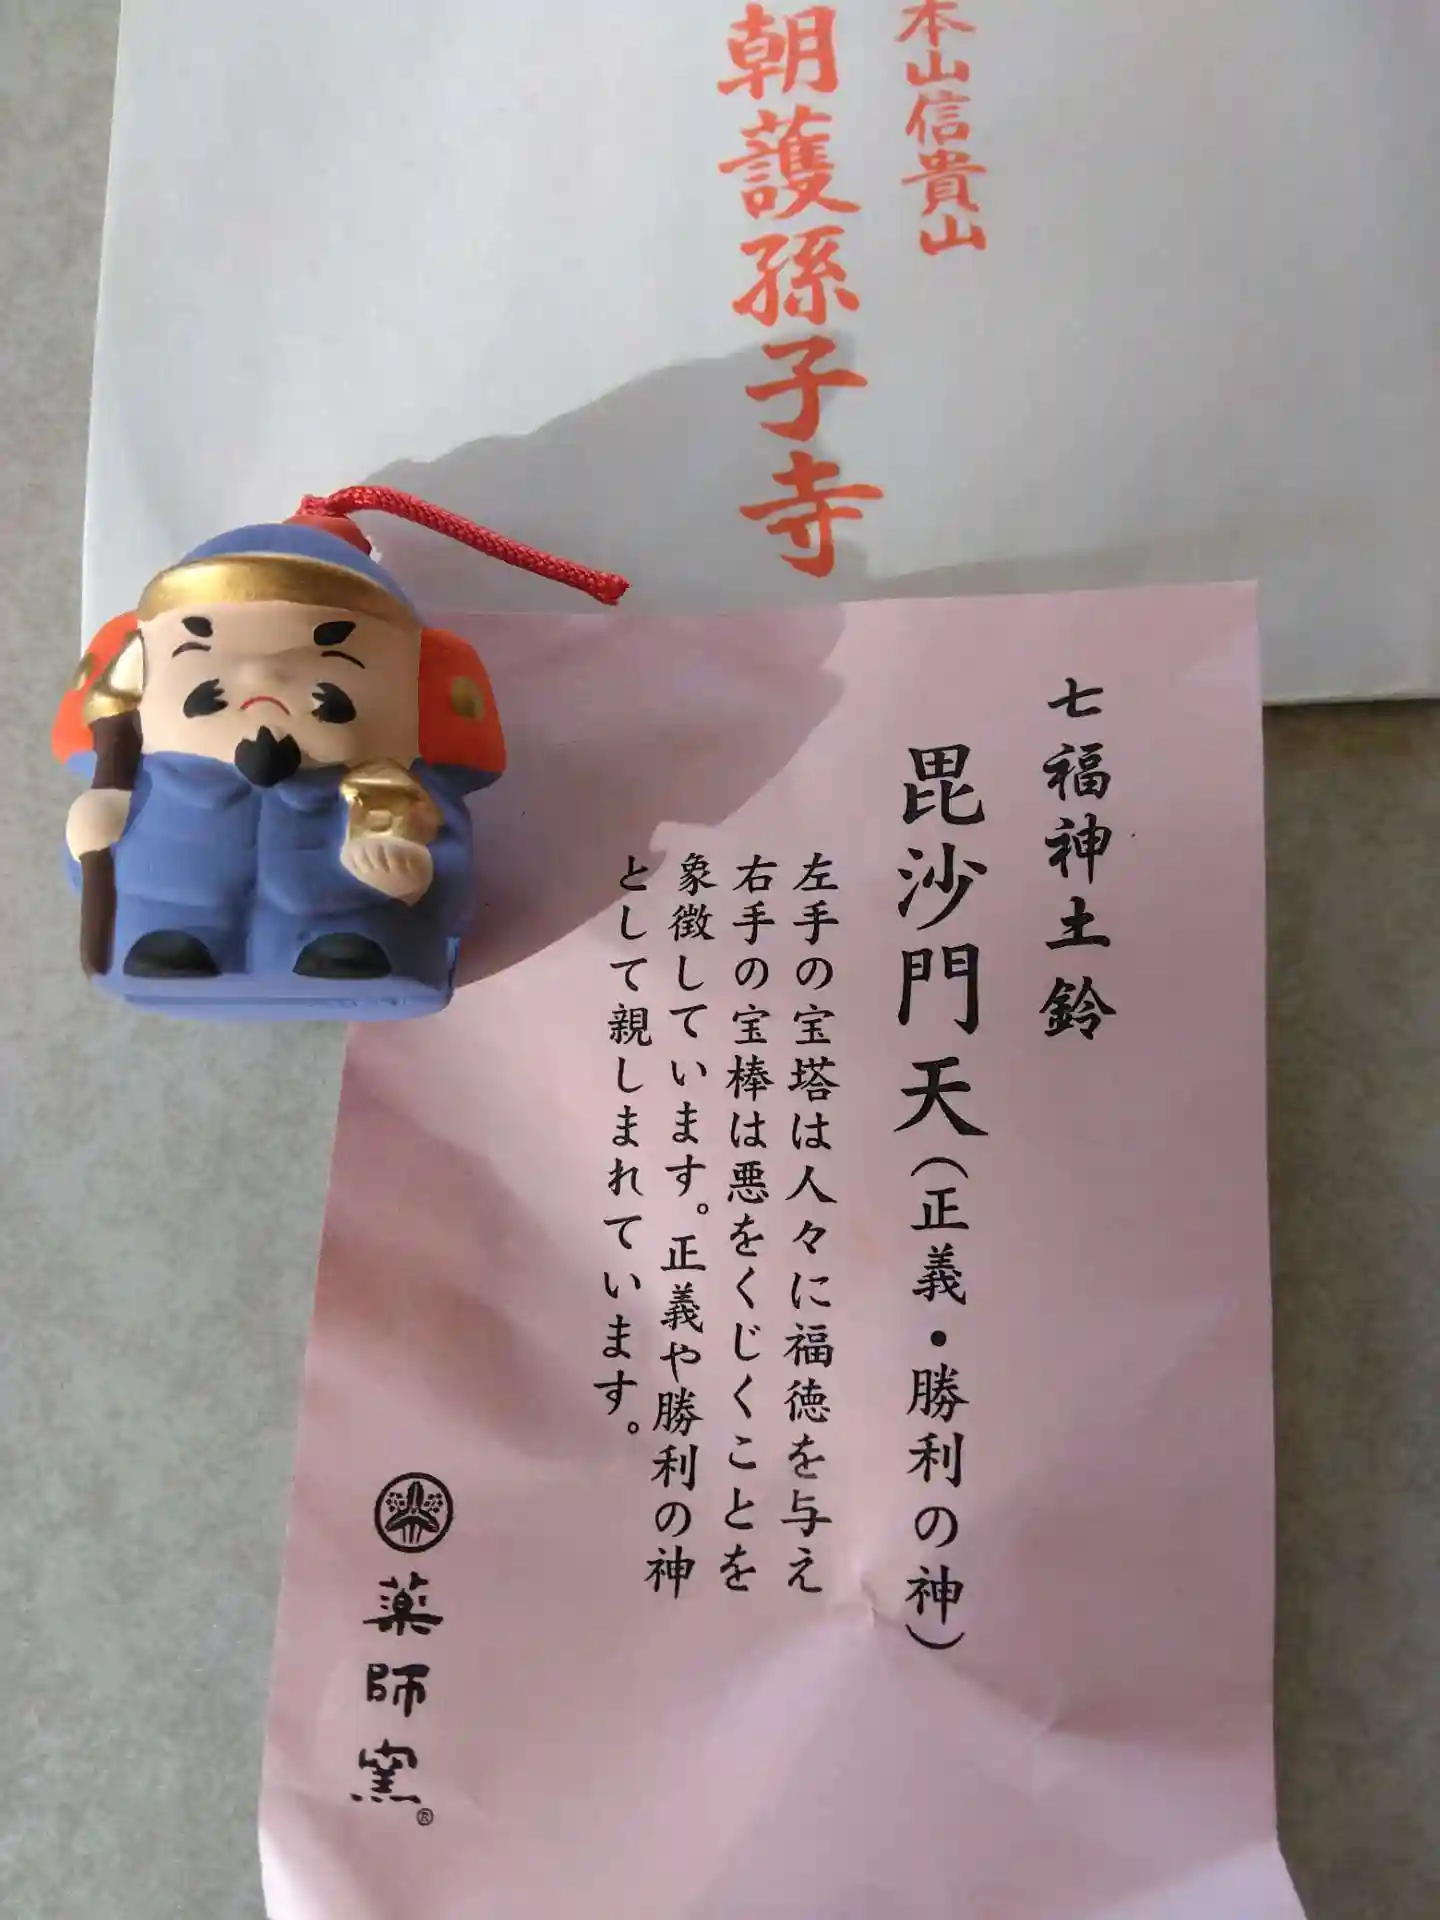 本山信貴山
朝護孫子寺
七福神土鈴
毘沙門天(正義・勝利の神)
左手の宝塔は人々に福徳を与え
右手の宝棒は悪をくじくことを
象徴しています。正義や勝利の神
として親しまれています。
薬師窯®